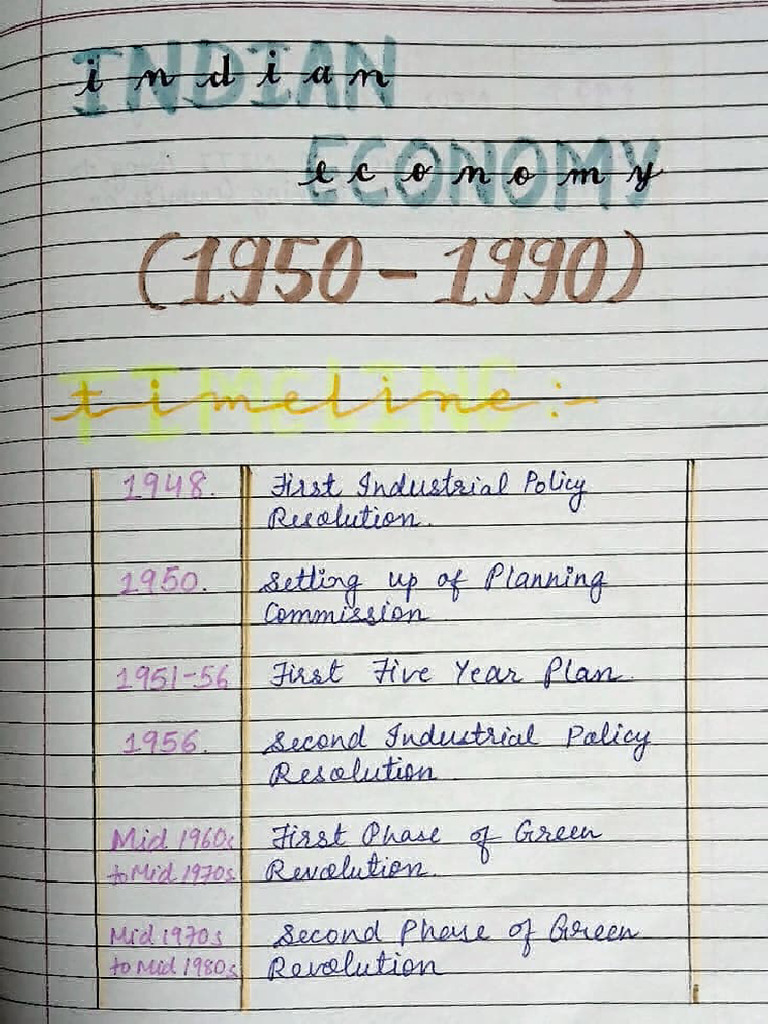 INDIAN
indian
ECONOMY
economy
(1950-1990)
TIMELINE
timeline:-
1948. First Industrial Policy
Resolution.
1950. Setting up of Planning
Commission
1951-56 First Five Year Plan.
1956. Second Industrial Policy
Resolution
Mid 1960s First Phase of Green
to Mid 1970s Revolution.
Mid 1970s Second Phase of Green
to Mid 1980s Revolution